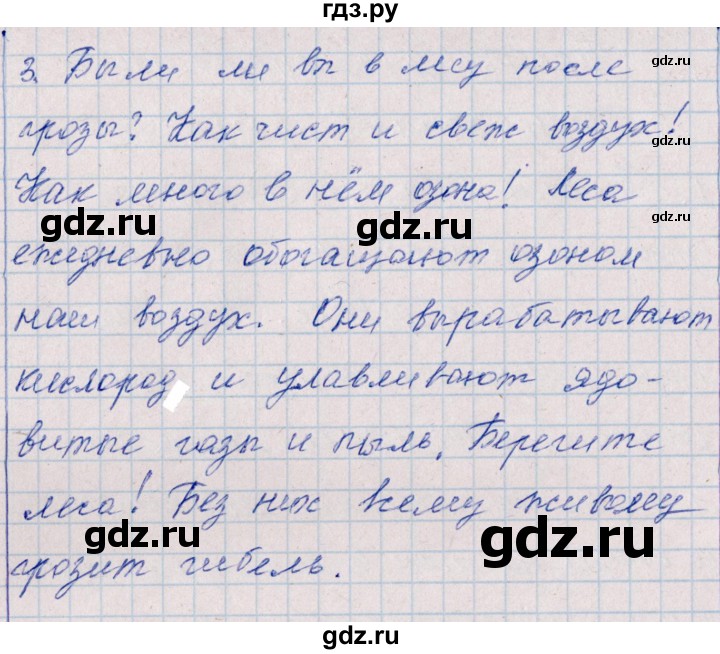 гдз.ру
3. Были ли вы в лесу после
gdz.ru
грозы? Как чист и свеж воздух!
gdz.ru
Как много в нём озона! Леса
gdz.ru
gdz.ru
gdz.ru
ежедневно обогащают озоном
наш воздух. Они вырабатывают
gdz.ru
кислород и улавливают ядо-
gdz.ru
витые газы и пыль. Берегите
леса! Без них всему живому
gdz.ru
gdz.ru
грозит гибель.
gdz.ru
gdz.ru